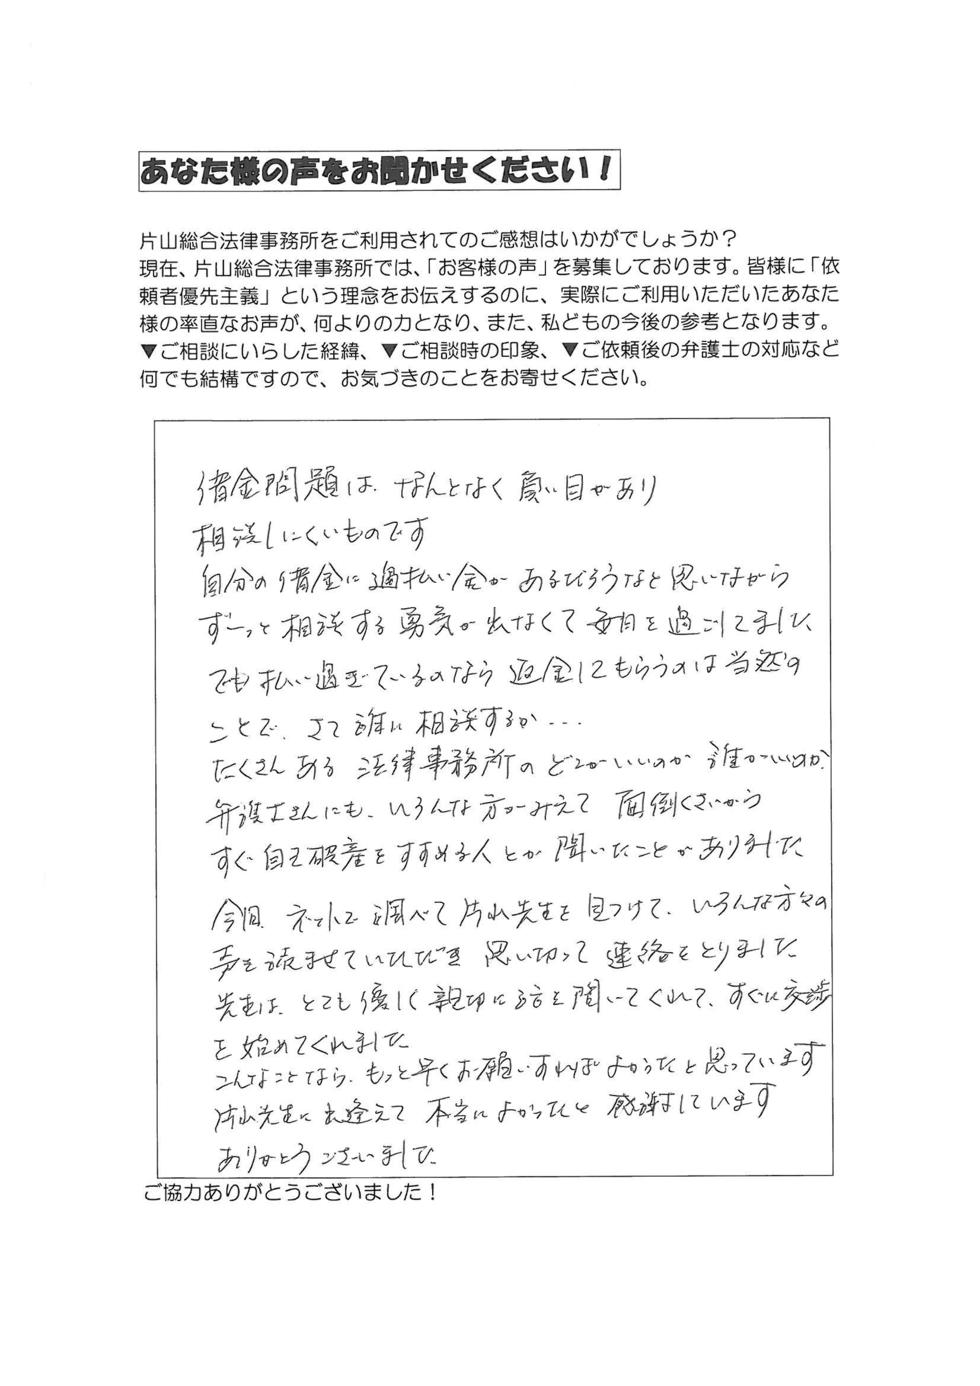 あなた様の声をお聞かせください！
片山総合法律事務所をご利用されてのご感想はいかがでしょうか？
現在、片山総合法律事務所では、「お客様の声」を募集しております。皆様に「依
頼者優先主義」という理念をお伝えするのに、実際にご利用いただいたあなた
様の率直なお声が、何よりの力となり、また、私どもの今後の参考となります。
▼ご相談にいらした経緯、▼ご相談時の印象、▼ご依頼後の弁護士の対応など
何でも結構ですので、お気づきのことをお寄せください。
借金問題は、なんとなく負い目があり
相談しにくいものです
自分の借金に過払い金があるだろうなと思いながら
ずーっと相談する勇気が出なくて毎日を過ごしてました。
でも払い過ぎているのなら返金してもらうのは当然の
ことで、さて誰に相談するか...
たくさんある法律事務所のどこがいいのか誰がいいのか、
弁護士さんにも、いろんな方がみえて面倒くさいから
すぐ自己破産をすすめる人とか聞いたことがありました。
今回、ネットで調べて片山先生を見つけて、いろんな方々の
声を読ませていただき思い切って連絡をとりました。
先生は、とても優しく親切に話を聞いてくれて、すぐに交渉
を始めてくれました
こんなことなら、もっと早くお願いすればよかったと思っています
片山先生に出逢えて本当によかったと感謝しています
ありがとうございました。
ご協力ありがとうございました！